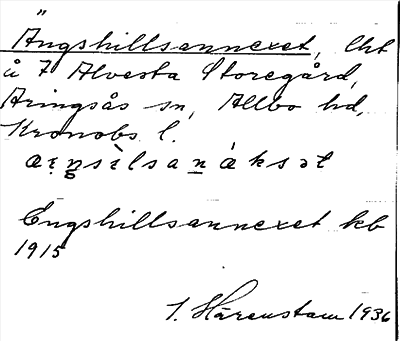 Ängshillsannexet, lht
å 7 Alvesta Storegård,
Aringsås sn, Allbo hd,
Kronobs l.
Engshillsannexet kb
1915
I. Härenstam 1936